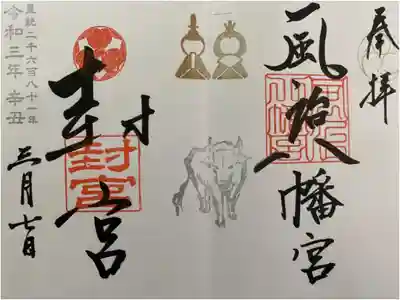 奉拝
風治八幡宮
封宮
封宮
皇紀二千六百八十一年
令和三年 辛丑
三月七日